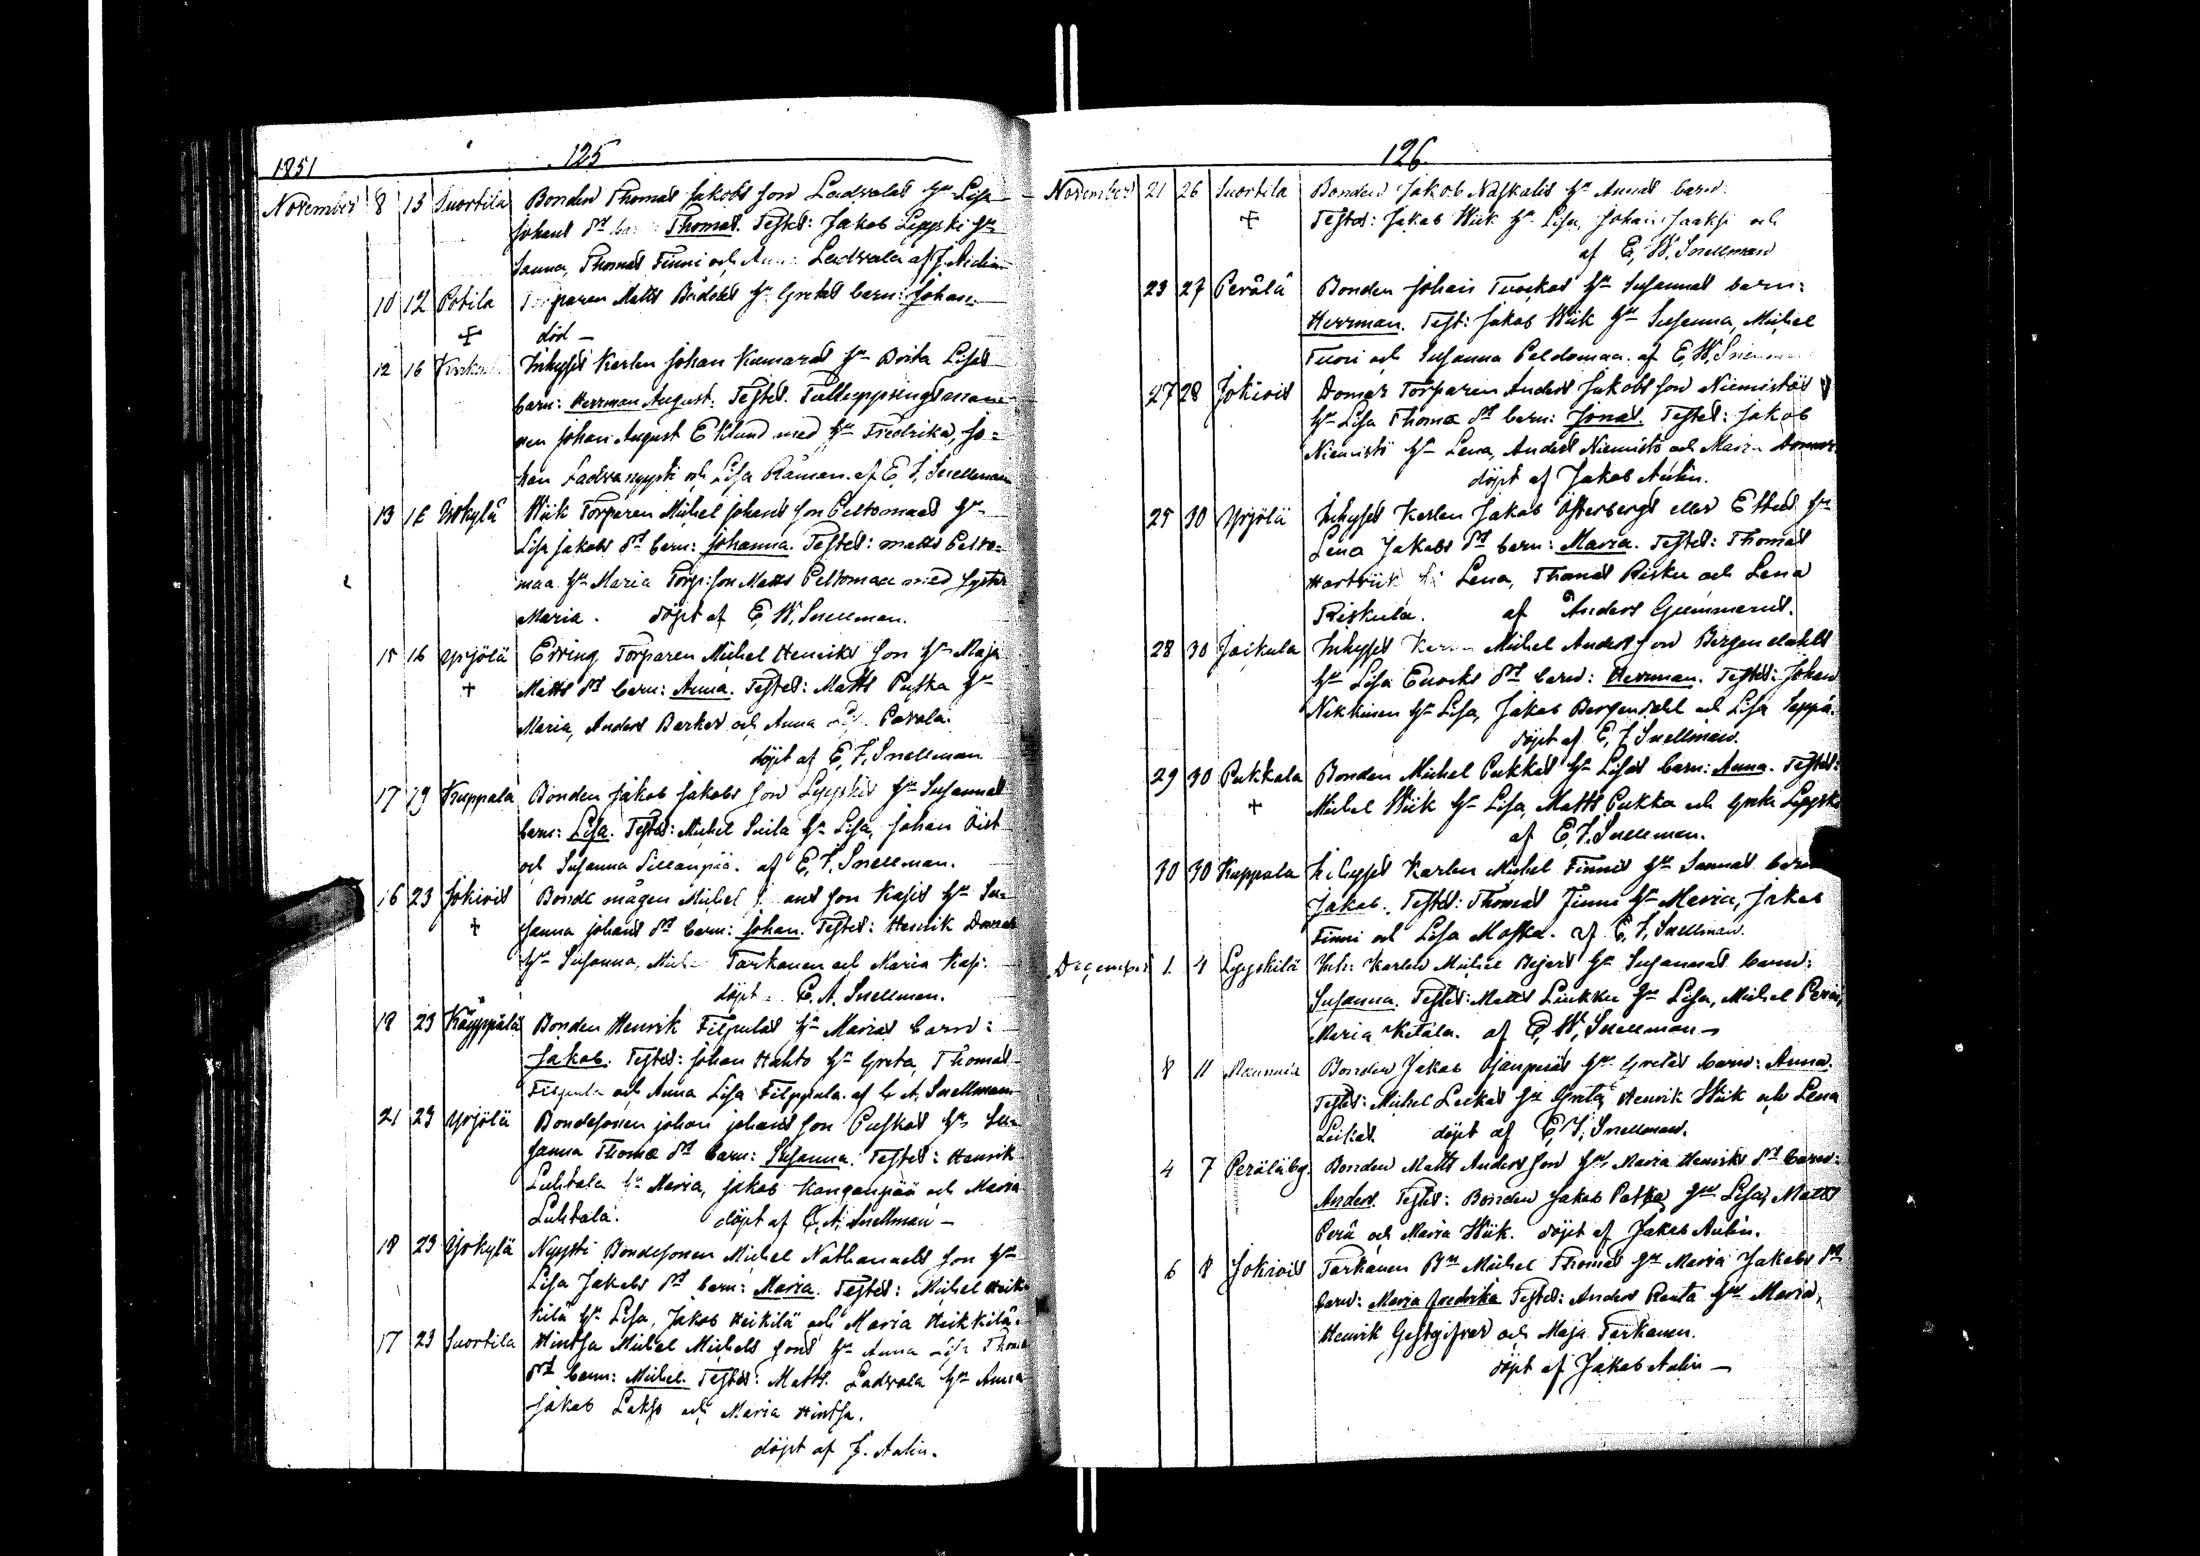 1851
125
November 8 13 Suortila Bonden Thomas Jakobs son Ladvalas hu Lisa
Johans dr Thomas. Testes: Jakob Lyyski hu
Sanna, Thomas Finni och Ladvala af J. Aulin
10 12 Potila Matts hu Gretas barn: Johan
+ död —
12 16 Inhyses Karlen Johan hu Brita Lisas
barn: Herrman August. Testes.
ren Johan August Eklund med hu Fredrika, Jo=
han och Lisa af E. F. Snellman
13 16 Yrkylä Wiik Torparen Michel Johans son Peltomaas hu
Lisa Jakobs dr barn: Johanna. Testes: Matts Pelto=
maa hu Maria Torp: son Matts Peltomaa med syster
Maria. döpt af E. W. Snellman.
15 16 Yrjölä Erving Torparen Michel Henriks son hu Maja
+ Matts dr barn: Anna. Testes: Matts Puska hu
Maria, Anders Barker och Anna Pavola.
döpt af E. F. Snellman
17 19 Kuppala Bonden Jakob Jakobs son Lyyskis hu Susannas
barn: Lisa. Testes: Michel Suila hu Lisa, Johan Öist
och Susanna Sillanpää. af E. F. Snellman.
16 23 Jokivis Bonde mågen Michel son Kasis hu Su=
+ sanna Johans dr barn: Johan. Testes: Henrik Domar
hu Susanna, Tarkanen och Maria Kasi.
döpt E. A. Snellman.
18 23 Käyppälä Bonden Henrik Filpulas hu Marias barn:
Jakob. Testes: Johan Hahto hu Greta, Thomas
Filpula och Anna Lisa Filppula. af E. A. Snellman
21 23 Yrjölä Bondesonen Johan Johans son Puskas hu Su=
sanna Thomæ dr barn: Susanna. Testes: Henrik
Luhtala hu Maria, Jakob Kangaspää och Maria
Luhtala. döpt af E. A. Snellman —
18 23 Yrkylä Nyysti Bondesonen Michel Nathanaels son hu
Lisa Jakobs dr barn: Maria. Testes: Michel Heik=
kilä hu Lisa, Jakob Heikilä och Maria Heikkilä.
17 23 Suortila Hintsa Michel Michels sons hu Anna Lisa Thomæ
dr barn: Michel. Testes: Matts. Ladvala hu Anna
Jakob Lakso och Maria Hintsa.
döpt af J. Aulin.
126
November 21 26 Suortila Bonden Jakob Naskalis hu Annas barn.
+ Testes: Jakob Wiik hu Lisa, Johan Jaaksi och
af E. W. Snellman
23 27 Perälä Bonden Johan Tuockas hu Susannas barn:
Herrman. Test: Jakob Wiik hu Susanna, Michel
Tuori och Susanna Peldomaa. af E. W.
27 28 Jokivis Domar Torparen Anders Jakobs son Niemistös
hu Lisa Thomæ dr barn: Jonas. Testes: Jakob
Niemistö hu Lena, Anders Niemistö och Maria Domar.
döpt af Jakob Aulin.
25 30 Yrjölä Inhyses Karlen Jakob Österbergs eller hu
Lena Jakobs dr barn: Maria. Testes: Thomas
Hartvik hu Lena, Thomas Risku och Lena
Riskula. af Anders Gummerus.
28 30 Jäikula Inhyses Michel Anders son Bergendahls
hu Lisa Enocks dr barn: Herrman. Testes: Johan
Nikkinen hu Lisa, Jakob Bergendahl och Lisa Seppä.
döpt af E. F. Snellman.
29 30 Pukkala Bonden Michel Pukkas hu Lisas barn: Anna. Testes:
+ Michel Wiik hu Lisa, Matts Pukka och Greta Lyyski
af E. F. Snellman.
30 30 Kuppala Inhyses Karlen Michel Finnis hu Sannas barn
Jakob. Testes: Thomas Finni hu Maria, Jakob
Finni och Lisa Moska. af E. F. Snellman.
December 1. 4 Lyyskilä Inh: Karlen Michel Rejers hu Susannas barn:
Susanna. Testes: Matts Liukku hu Lisa, Michel
Maria Kitala. af E. W. Snellman —
8 11 Maunnia Bonden Jakob Ojanperäs hu Gretas barn: Anna.
Testes: Michel Leekas hu Greta, Henrik Wiik och Lena
döpt af E. F. Snellman.
4 7 Peräläbg. Bonden Matts Anders son hu Maria Henriks dr barn:
Anders. Testes: Bonden Jakob Patka hu Lisa, Matts
Perä och Maria Wiik. döpt af Jakob Aulin.
6 8 Jokivis Tarkanen Bn Michel Thomas hu Maria Jakobs dr
barn: Maria Fredrika Testes: Anders Ranta hu Maria,
Henrik Gestgifvar och Maja Tarkanen.
döpt af Jakob Aulin —